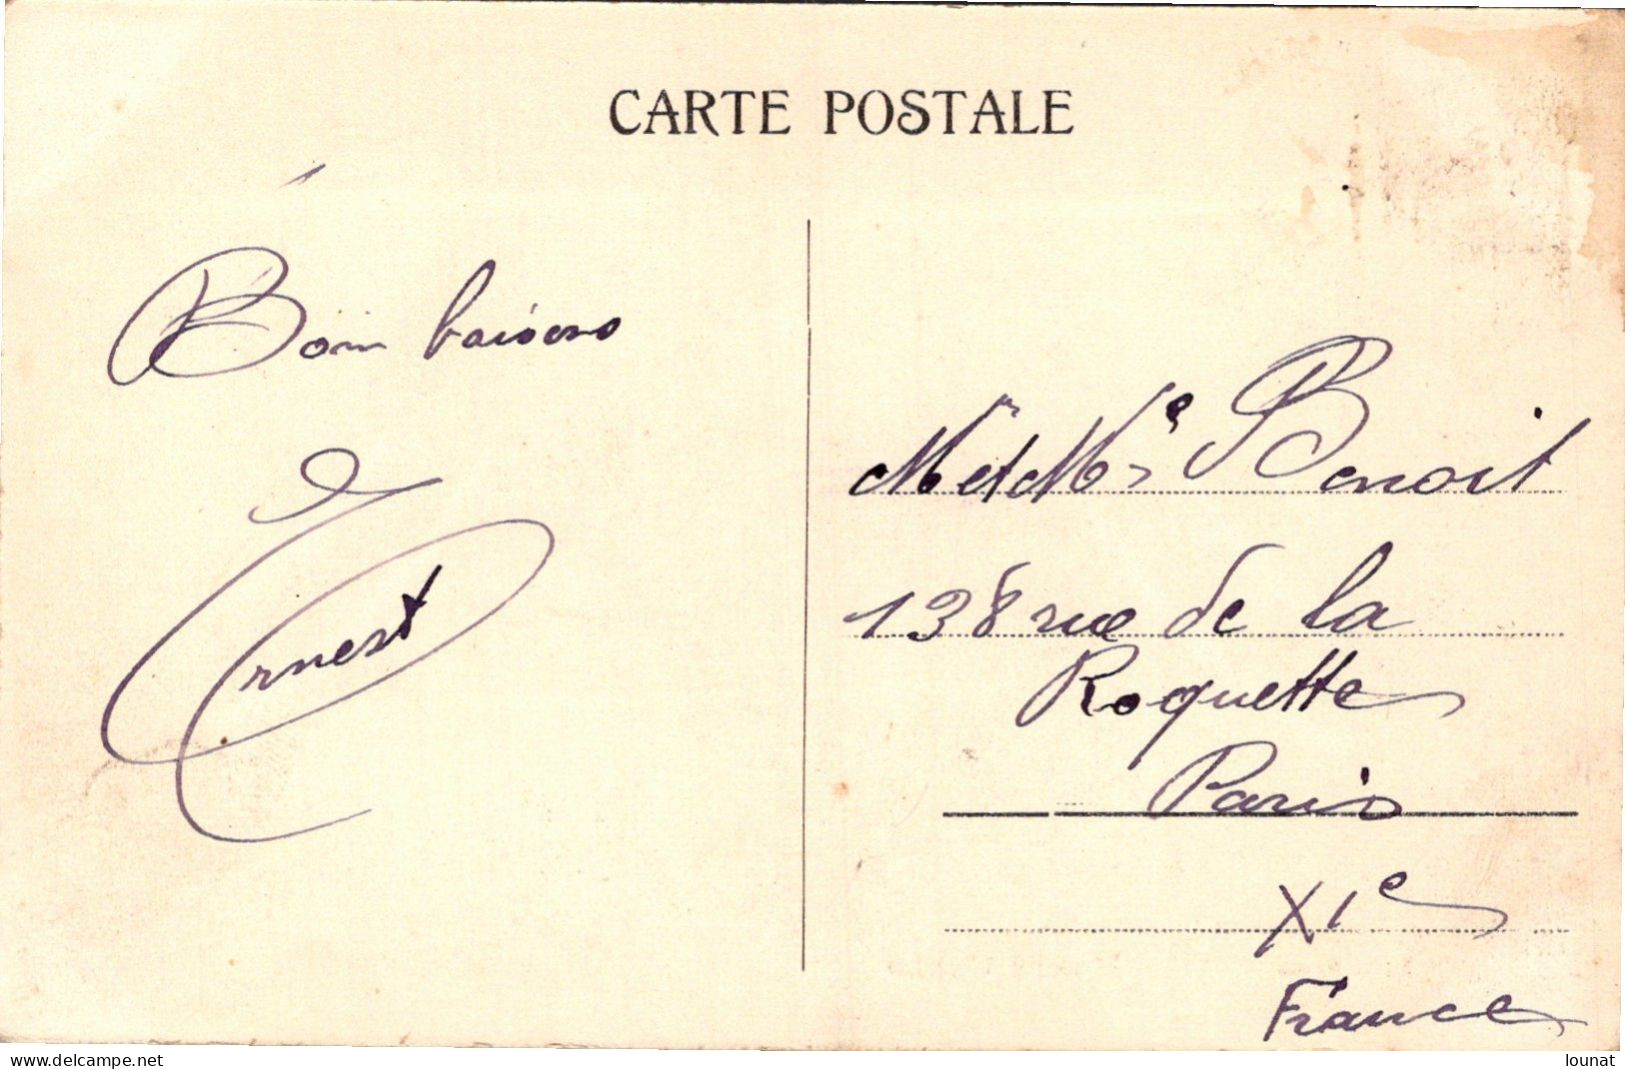 CARTE POSTALE
Bons baisers
Ernest
M et Me Benoit
138 rue de la
Roquette
Paris
XIe
France
www.delcampe.net
lounat